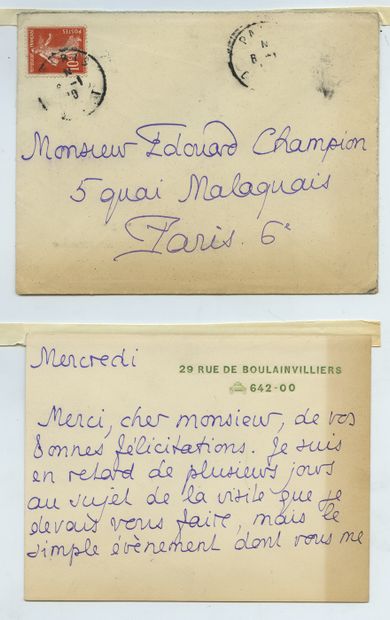 POSTES
10
PARIS
Monsieur Edouard Champion
5 quai Malaquais
Paris. 6e
Mercredi
29 RUE DE BOULAINVILLIERS
642-00
Merci, cher monsieur, de vos
bonnes félicitations. Je suis
en retard de plusieurs jours
au sujet de la visite que je
devais vous faire, mais le
simple évènement dont vous me